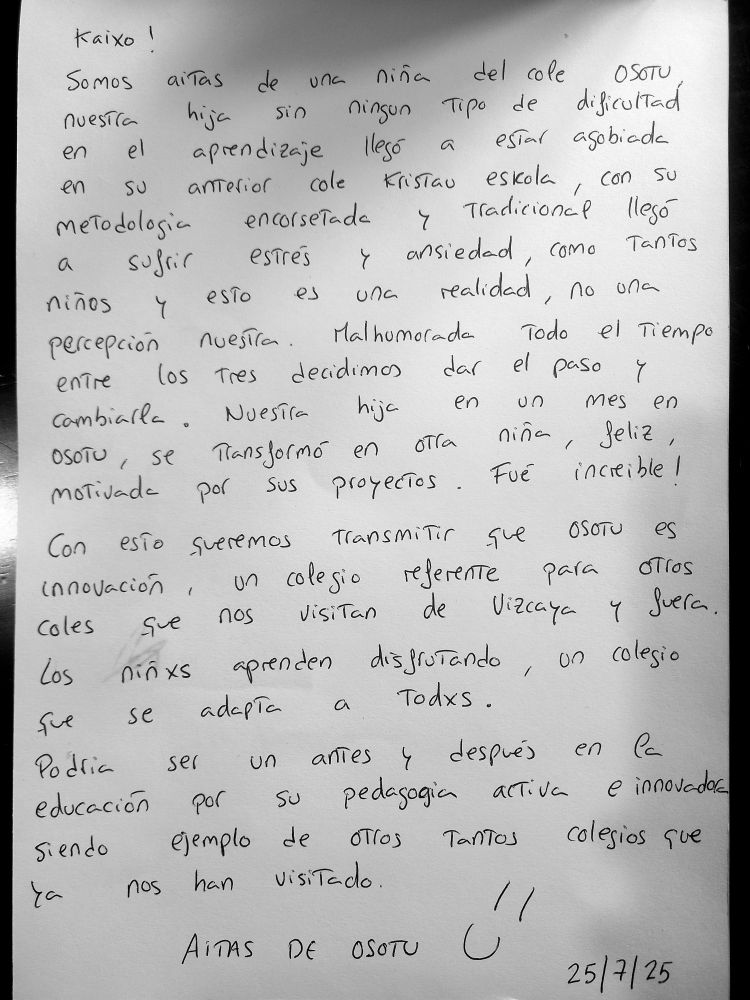 Kaixo!
Somos aitas de una niña del cole OSOTU,
nuestra hija sin ningun tipo de dificultad
en el aprendizaje llegó a estar agobiada
en su anterior cole Kristau eskola, con su
metodologia encorsetada y tradicional llegó
a sufrir estrés y ansiedad, como tantos
niños y esto es una realidad, no una
percepción nuestra. Malhumorada todo el tiempo
entre los tres decidimos dar el paso y
cambiarla. Nuestra hija en un mes en
OSOTU, se transformó en otra niña, feliz,
motivada por sus proyectos. Fué increible!
Con esto queremos transmitir que OSOTU es
innovación, un colegio referente para otros
coles que nos visitan de Vizcaya y fuera.
Los niñxs aprenden disfrutando, un colegio
que se adapta a todxs.
Podria ser un antes y después en la
educación por su pedagogia activa e innovadora
siendo ejemplo de otros tantos colegios que
ya nos han visitado.
AITAS DE OSOTU
25/7/25